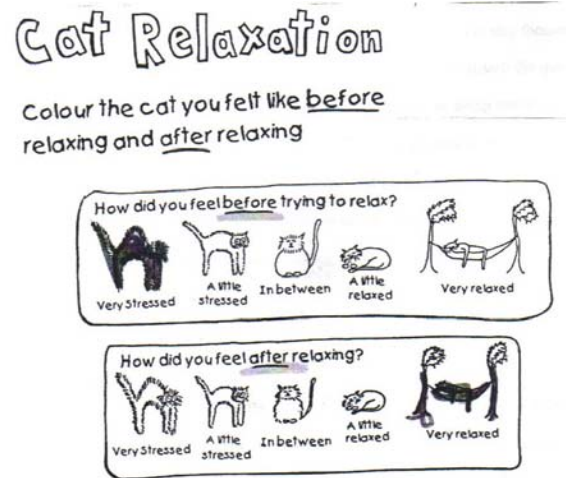 Cat Relaxation
Colour the cat you felt like before
relaxing and after relaxing
How did you feel before trying to relax?
Very Stressed
A little
stressed
In between
A little
relaxed
Very relaxed
How did you feel after relaxing?
Very Stressed
A little
stressed
In between
A little
relaxed
Very relaxed